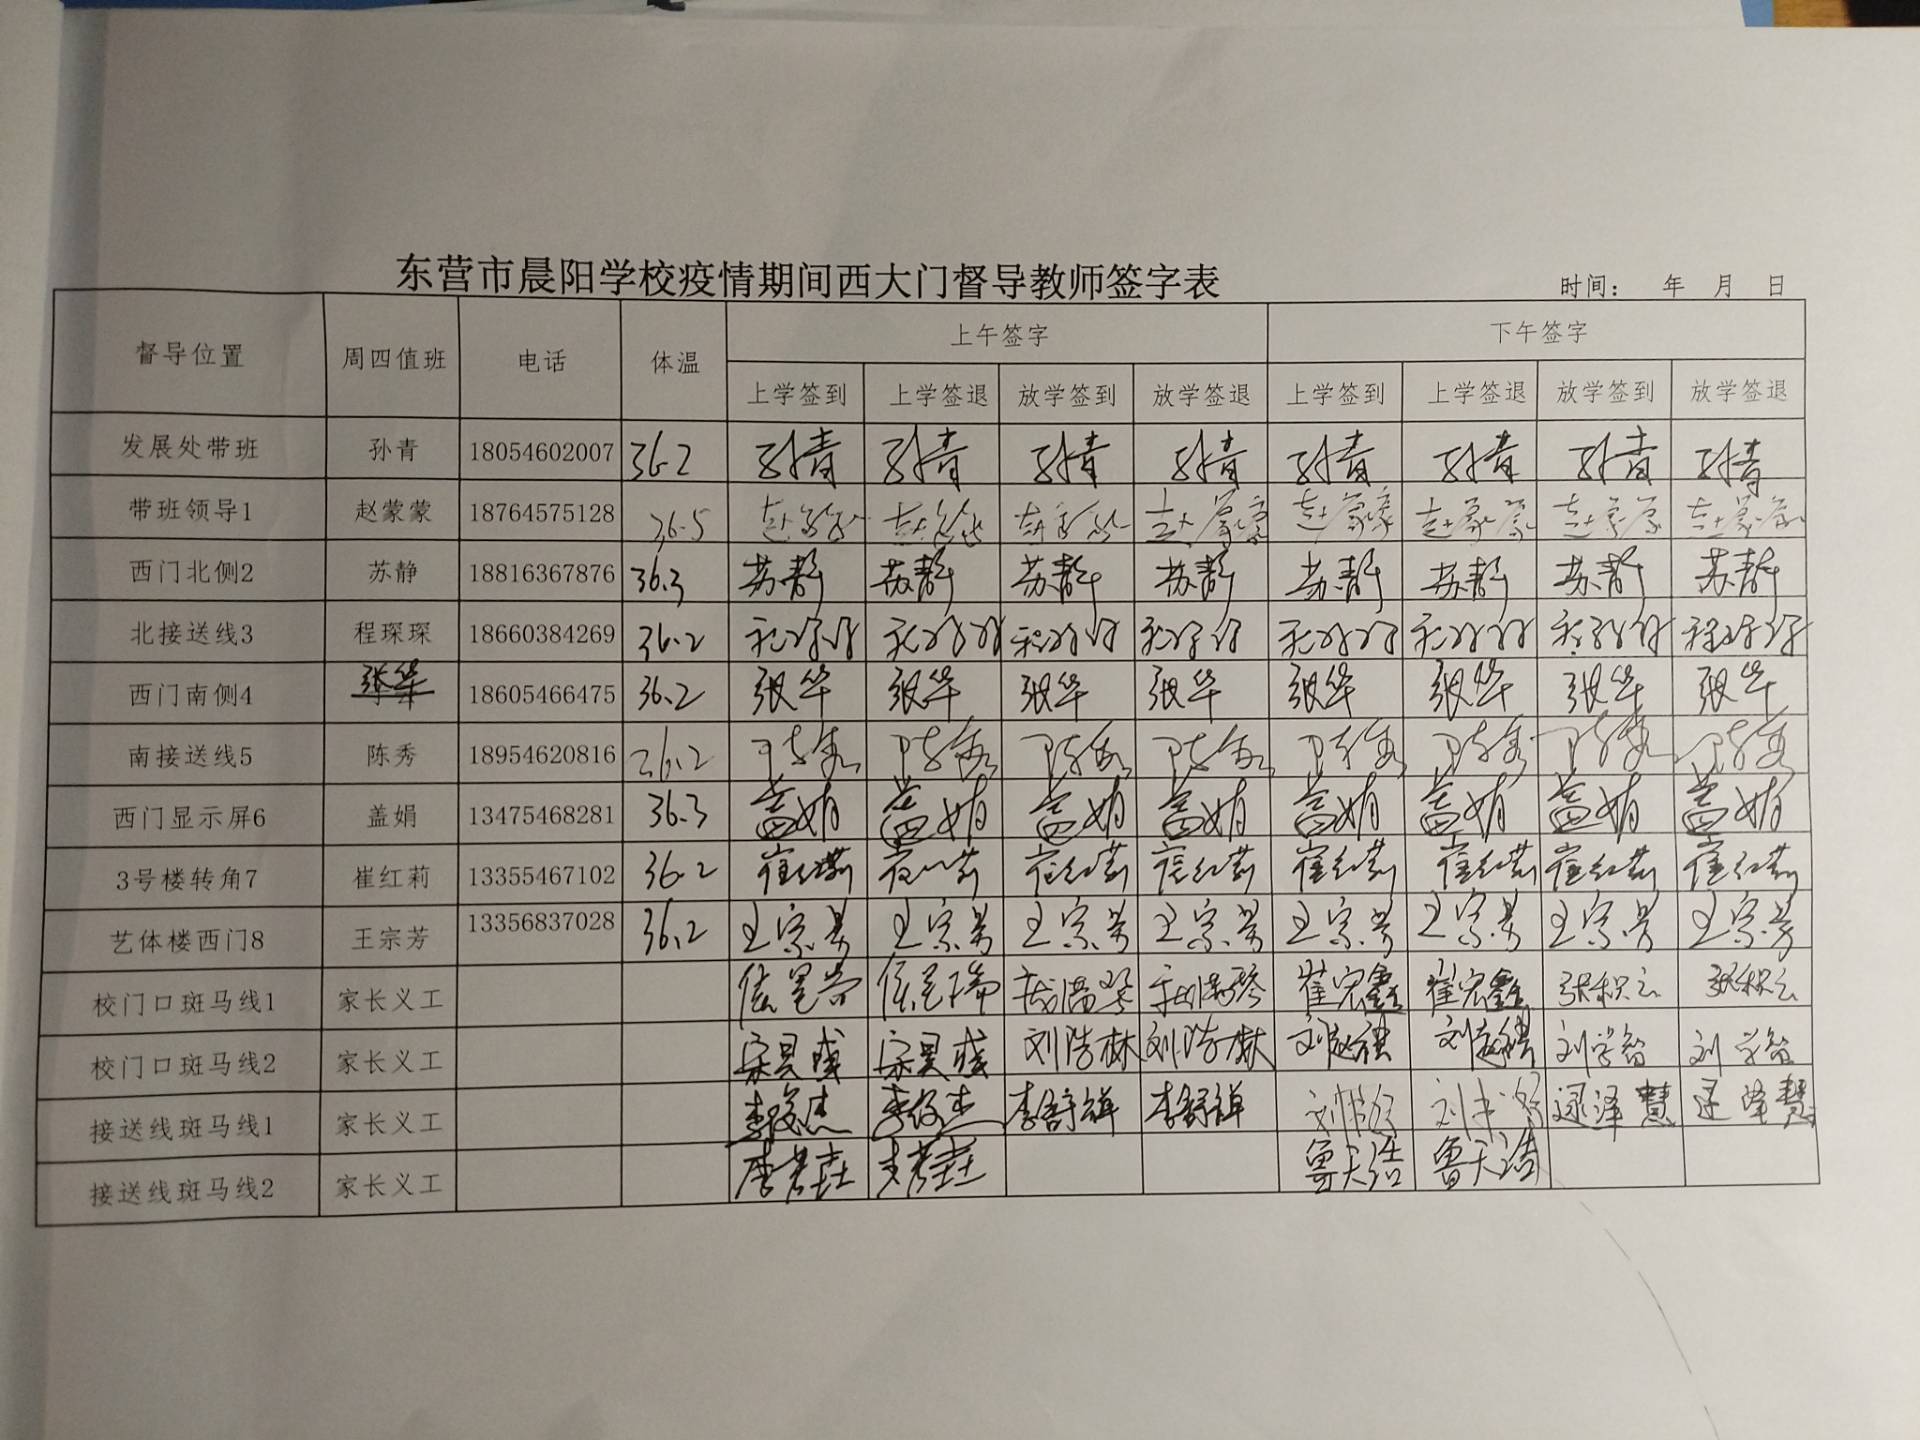 东营市晨阳学校疫情期间西大门督导教师签字表
时间： 年 月 日
督导位置 周四值班 电话 体温 上午签字 下午签字
上学签到 上学签退 放学签到 放学签退 上学签到 上学签退 放学签到 放学签退
发展处带班 孙青 18054602007 36.2 孙青 孙青 孙青 孙青 孙青 孙青 孙青 孙青
带班领导1 赵蒙蒙 18764575128 36.5 赵蒙蒙 赵蒙蒙 赵蒙蒙 赵蒙蒙 赵蒙蒙 赵蒙蒙 赵蒙蒙 赵蒙蒙
西门北侧2 苏静 18816367876 36.3 苏静 苏静 苏静 苏静 苏静 苏静 苏静 苏静
北接送线3 程琛琛 18660384269 36.2 程琛琛 程琛琛 程琛琛 程琛琛 程琛琛 程琛琛 程琛琛 程琛琛
西门南侧4 张华 18605466475 36.2 张华 张华 张华 张华 张华 张华 张华 张华
南接送线5 陈秀 18954620816 36.2 陈秀 陈秀 陈秀 陈秀 陈秀 陈秀 陈秀 陈秀
西门显示屏6 盖娟 13475468281 36.3 盖娟 盖娟 盖娟 盖娟 盖娟 盖娟 盖娟 盖娟
3号楼转角7 崔红莉 13355467102 36.2 崔红莉 崔红莉 崔红莉 崔红莉 崔红莉 崔红莉 崔红莉 崔红莉
艺体楼西门8 王宗芳 13356837028 36.2 王宗芳 王宗芳 王宗芳 王宗芳 王宗芳 王宗芳 王宗芳 王宗芳
校门口斑马线1 家长义工 崔宏鑫 崔宏鑫 张积云 张积云
校门口斑马线2 家长义工 刘浩林 刘浩林 刘学智 刘学智
接送线斑马线1 家长义工 李俊杰 李俊杰 李舒祥 李舒祥
接送线斑马线2 家长义工 鲁天浩 鲁天浩